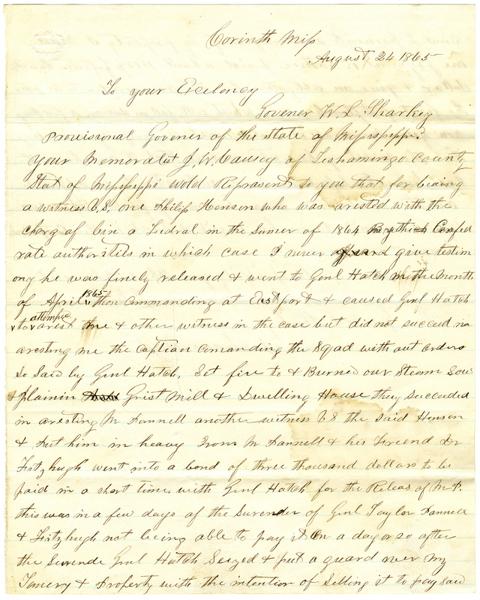 Corinth Miss
August, 24 1865
To your Excelency
Govener W. L. Sharkey
Provisional Govener of the State of Mississippi
Your Memoralist J. W. Causey of Tishamingo County
Stat of Mississippi wold Represant to you that for being
a witness V.S. one Philip Henson who was arested with the
charg of bein a Fedral in the Sumer of 1864 By the Confed
rate authorities in which case I never give testim
ony he was finely released & went to Genl Hatch in the month
of April 1865 then Commanding at Eastport & caused Genl Hatch
to attempt arest me & other witness in the case but did not succeed in
aresting me the Captian Comanding the Sqad without orders
So Said by Genl Hatch. Set fire to & Burned our Steam Saw
& plainin Grist Mill & Dwelling House they Succeded
in aresting M. Fannell another witness VS the Said Henson
& Put him in heavy Irons M. Fannell & his Freend Dr
Fitzhugh went into a bond of three thousand dollars to be
paid in a short time with Genl Hatch for the Releas of M. F.
this was in a few days of the Surender of Genl Taylor Fannell
& Fitzhugh not being able to pay it On a day or so after
the Surende Genl Hatch Seized & put a guard over my
Tanery & Property with the intention of Selling it to pay said